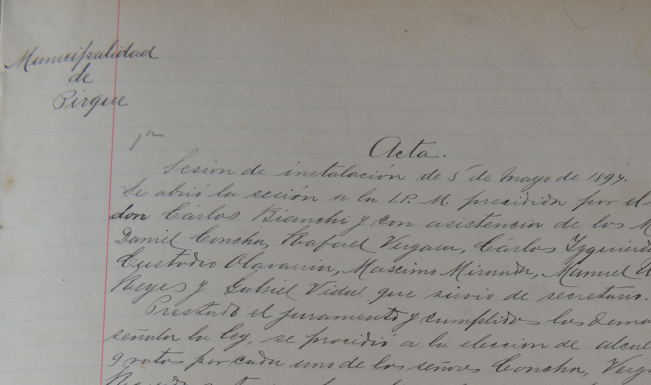 Municipalidad
de
Pirque
1ra
Acta.
Sesion de instalación de 5 de Mayo de 1897.
Se abrió la sesión a la 1 P. M. presidida por el
don Cárlos Bianchi y con asistencia de los
Daniel Concha, Rafael Vergara, Cárlos Izquierdo
Custodio Olavarria, Maximo Miranda, Manuel
Reyes y Gabriel Vidal que sirvio de secretario.
Prestado el juramento y cumplidos los demas
señala la ley, se procidio a la eleccion de
9 votos por cada uno de los señores Concha,